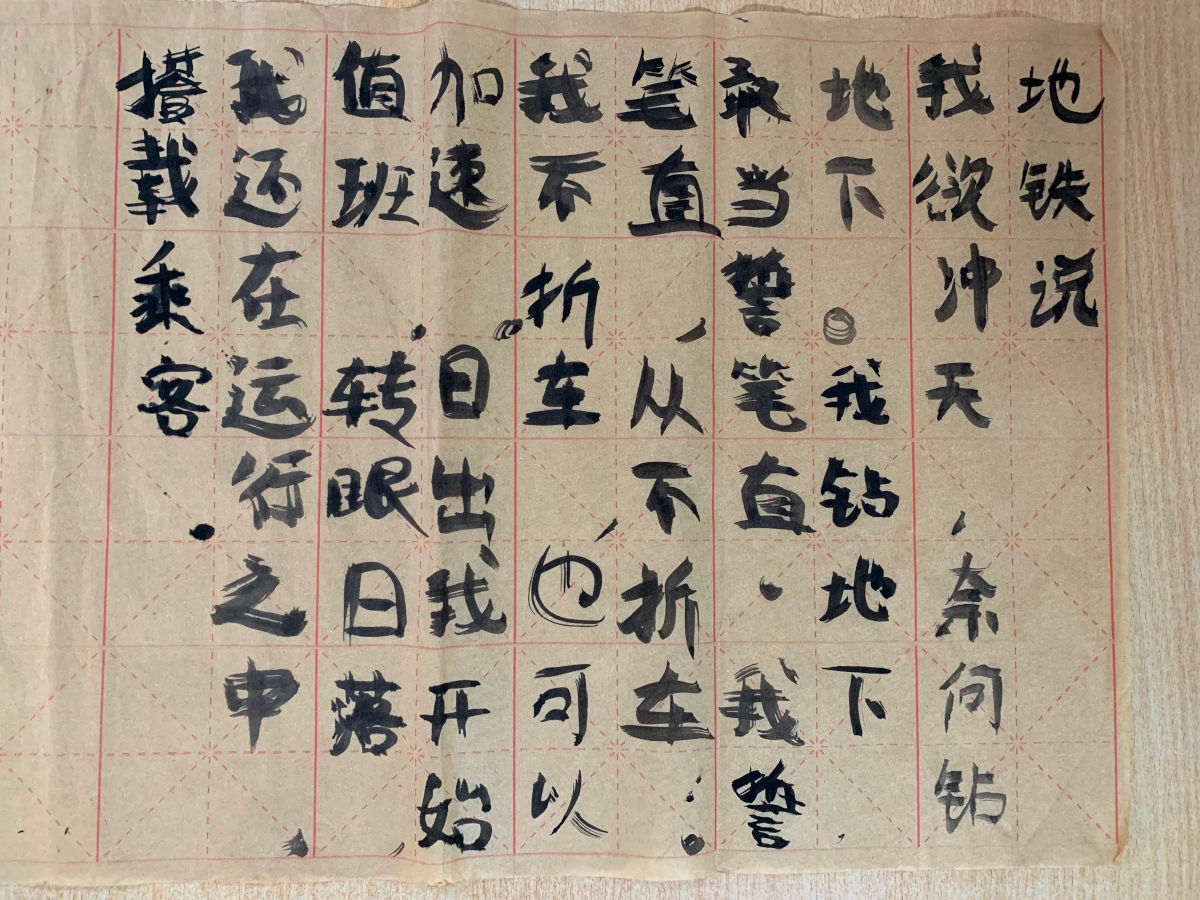 地铁说
我欲冲天，奈何钻
地下。我钻地下，
敢当誓笔直。我誓
笔直，从不折车。
我不折车，也可以
加速。日出我开始
值班，转眼日落，
我还在运行之申，
搭载乘客。